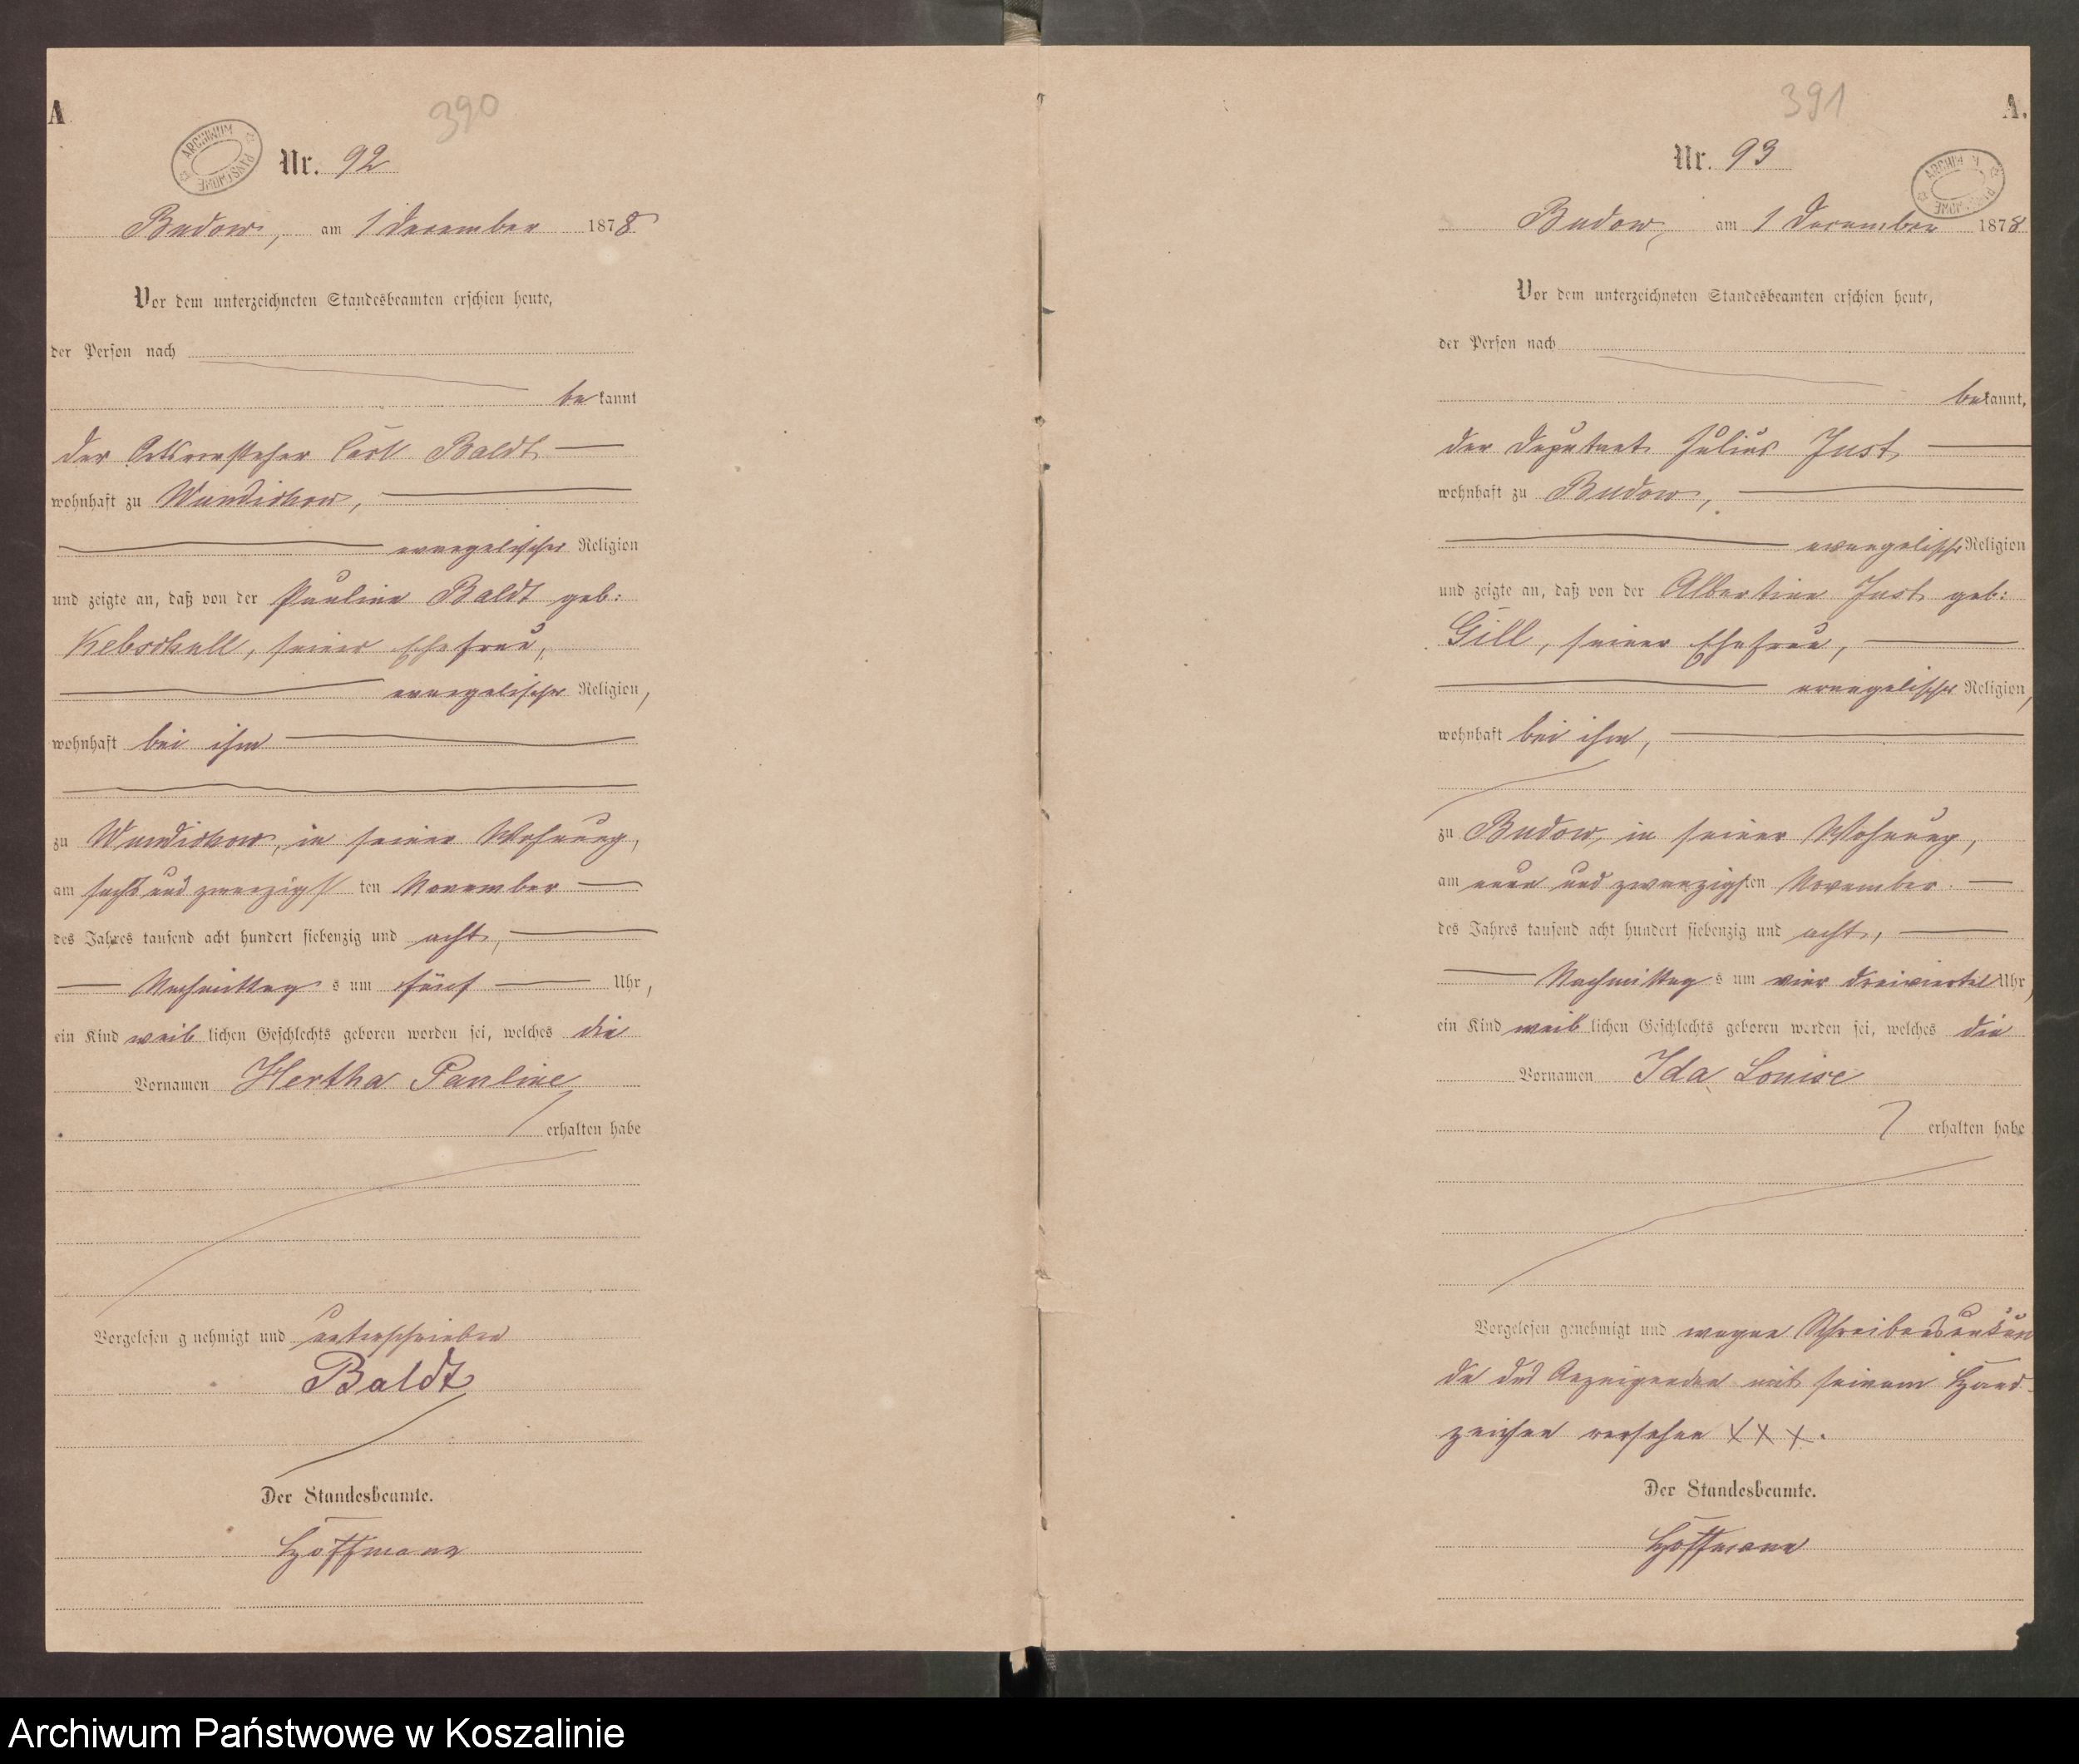 A
390
ARCHIWUM PAŃSTWOWE
Nr. 92
Budow, am 1 December 1878
Vor dem unterzeichneten Standesbeamten erschien heute,
der Person nach
bekannt
der Ortsvorsteher Carl Baldt
wohnhaft zu Wundichow,
evangelischer Religion
und zeigte an, daß von der Pauline Baldt geb:
Kebschull, seiner Ehefrau,
evangelischer Religion,
wohnhaft bei ihm
zu Wundichow, in seiner Wohnung,
am sechs und zwanzigsten November
des Jahres tausend acht hundert siebenzig und acht,
Nachmittags um fünf Uhr,
ein Kind weiblichen Geschlechts geboren worden sei, welches die
Vornamen Hertha Pauline
erhalten habe
Vorgelesen genehmigt und unterschrieben
Baldt
Der Standesbeamte.
Hoffmann
391
A.
Nr. 93
Budow, am 1 December 1878
Vor dem unterzeichneten Standesbeamten erschien heute,
der Person nach
bekannt,
der Deputant Julius Just
wohnhaft zu Budow,
evangelischer Religion
und zeigte an, daß von der Albertine Just geb:
Gill, seiner Ehefrau,
evangelischer Religion,
wohnhaft bei ihm,
zu Budow, in seiner Wohnung,
am neun und zwanzigsten November
des Jahres tausend acht hundert siebenzig und acht,
Nachmittags um vier dreiviertel Uhr,
ein Kind weiblichen Geschlechts geboren worden sei, welches die
Vornamen Ida Louise
erhalten habe
Vorgelesen genehmigt und wegen Schreibensunkun
de des Anzeigenden mit seinem Hand-
zeichen versehen XXX.
Der Standesbeamte.
Hoffmann
Archiwum Państwowe w Koszalinie